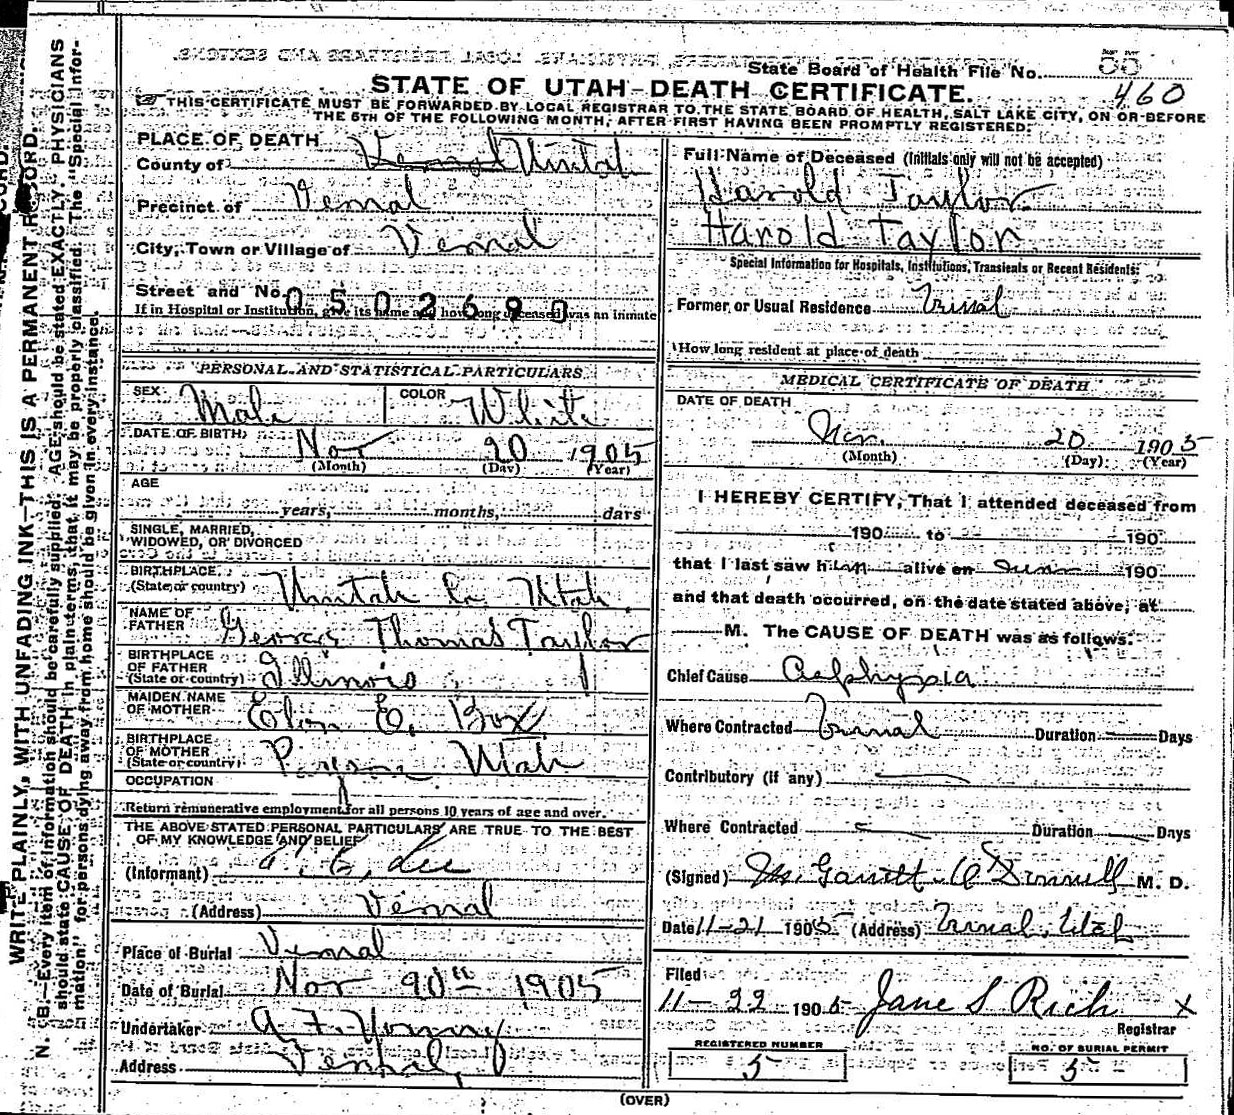 State Board of Health File No.
STATE OF UTAH-DEATH CERTIFICATE.
460
THIS CERTIFICATE MUST BE FORWARDED BY LOCAL REGISTRAR TO THE STATE BOARD OF HEALTH, SALT LAKE CITY, ON OR BEFORE
THE 5TH OF THE FOLLOWING MONTH, AFTER FIRST HAVING BEEN PROMPTLY REGISTERED.
PLACE OF DEATH
County of Vernal Uintah
Precinct of Vernal
City, Town or Village of Vernal
Street and No. 0502690
If in Hospital or Institution, give its name and how long deceased was an inmate
PERSONAL AND STATISTICAL PARTICULARS
SEX Male COLOR White
DATE OF BIRTH Nov 20 1905
(Month) (Day) (Year)
AGE
years, months, days
SINGLE, MARRIED,
WIDOWED, OR DIVORCED
BIRTHPLACE
(State or country) Uintah Co Utah
NAME OF
FATHER George Thomas Taylor
BIRTHPLACE
OF FATHER
(State or country) Illinois
MAIDEN NAME
OF MOTHER E. Box
BIRTHPLACE
OF MOTHER
(State or country) Payson Utah
OCCUPATION
Return remunerative employment for all persons 10 years of age and over.
THE ABOVE STATED PERSONAL PARTICULARS ARE TRUE TO THE BEST
OF MY KNOWLEDGE AND BELIEF
(Informant) Lee
(Address) Vernal
Place of Burial Vernal
Date of Burial Nov 20th 1905
Undertaker A. F. Young
Address Vernal,
Full Name of Deceased (Initials only will not be accepted)
Harold Taylor
Harold Taylor
Special Information for Hospitals, Institutions, Transients or Recent Residents:
Former or Usual Residence Vernal
How long resident at place of death
MEDICAL CERTIFICATE OF DEATH
DATE OF DEATH
Nov. 20 1905
(Month) (Day) (Year)
I HEREBY CERTIFY, That I attended deceased from
190 to 190
that I last saw him alive on 190
and that death occurred, on the date stated above, at
M. The CAUSE OF DEATH was as follows:
Chief Cause Asphyxia
Where Contracted Vernal Duration Days
Contributory (if any)
Where Contracted Duration Days
(Signed) M. Garrett O'Donnell M. D.
Date 11-21 1905 (Address) Vernal, Utah
Filed
11-22 1905 Jane S. Rich X
Registrar
REGISTERED NUMBER
5
NO. OF BURIAL PERMIT
5
(OVER)
WRITE PLAINLY, WITH UNFADING INK—THIS IS A PERMANENT RECORD.
N. B.—Every item of information should be carefully supplied. AGE should be stated EXACTLY. PHYSICIANS
should state CAUSE OF DEATH in plain terms, that it may be properly classified. The "Special Infor-
mation" for persons dying away from home should be given in every instance.